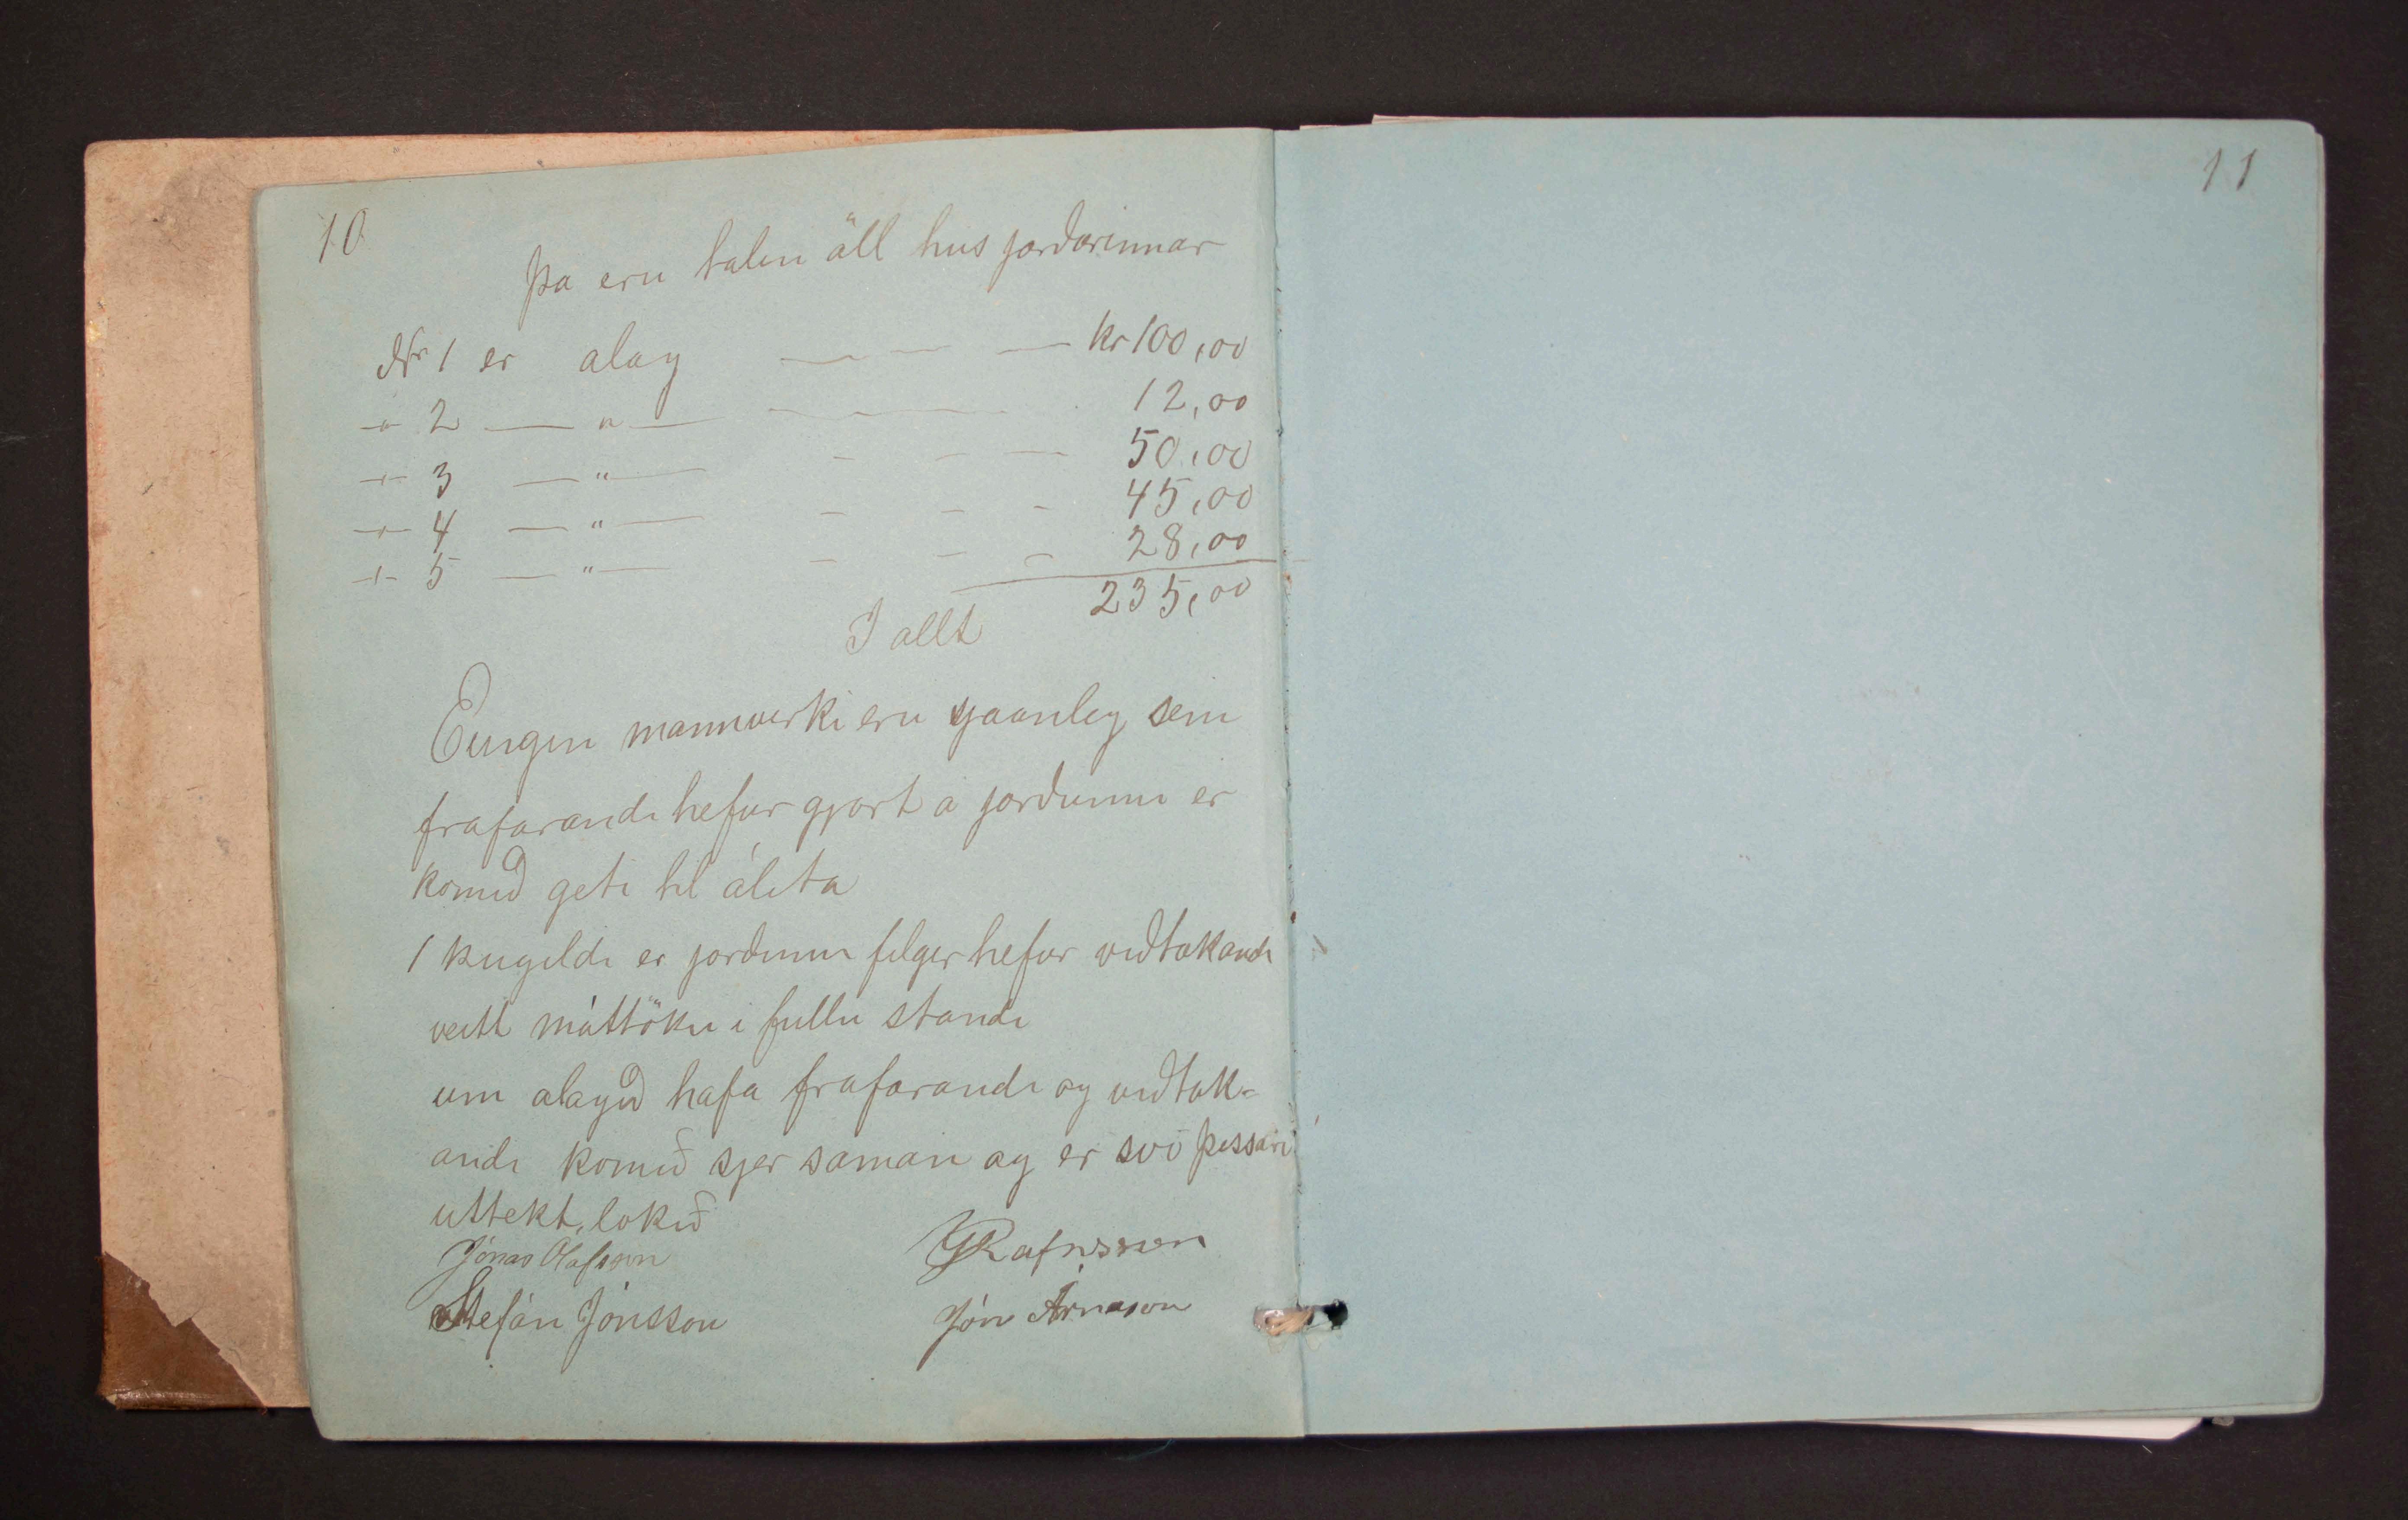 10
Þa eru talin äll hus jarðarinnar
Nr 1 er alag — — — kr 100,00
-"- 2 — " — — — — 12,00
-"- 3 — " — - - — 50,00
-"- 4 — " — - - - 45,00
-"- 5 — " — - - - 28,00
I allt 235,00
Eingin mannvirki eru sjaanleg sem
frafarandi hefur gjort a jorðunni er
komið geti til álita
1 kugildi er jorðinni filgir hefur viðtakandi
veitt móttöku i fullu standi
um alagið hafa frafarandi og viðtak-
andi komið sjer saman og er svo þessari
uttekt, lokið
Jónas Olafsson
Stefán Jónsson
Jón Árnason
11